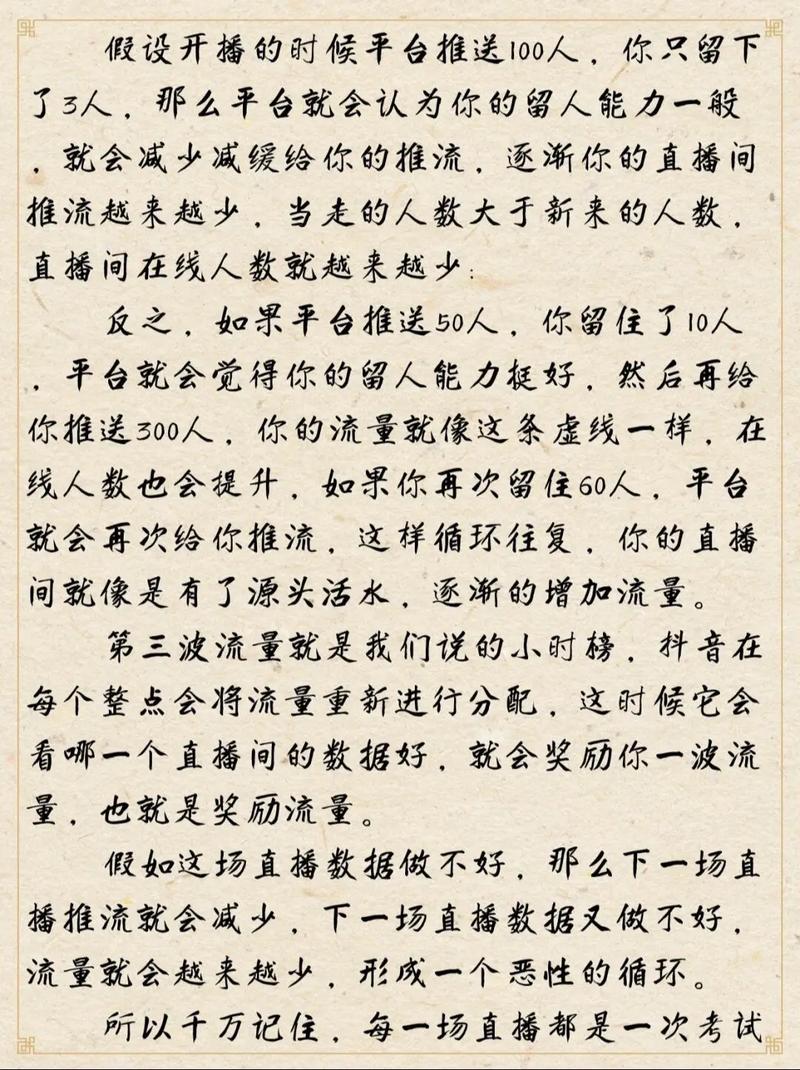 假设开播的时候平台推送100人，你只留下
了3人，那么平台就会认为你的留人能力一般
，就会减少减缓给你的推流，逐渐你的直播间
推流越来越少，当走的人数大于新来的人数，
直播间在线人数就越来越少；
反之，如果平台推送50人，你留住了10人
，平台就会觉得你的留人能力挺好，然后再给
你推送300人，你的流量就像这条虚线一样，在
线人数也会提升，如果你再次留住60人，平台
就会再次给你推流，这样循环往复，你的直播
间就像是有了源头活水，逐渐的增加流量。
第三波流量就是我们说的小时榜，抖音在
每个整点会将流量重新进行分配，这时候它会
看哪一个直播间的数据好，就会奖励你一波流
量，也就是奖励流量。
假如这场直播数据做不好，那么下一场直
播推流就会减少，下一场直播数据又做不好，
流量就会越来越少，形成一个恶性的循环。
所以千万记住，每一场直播都是一次考试